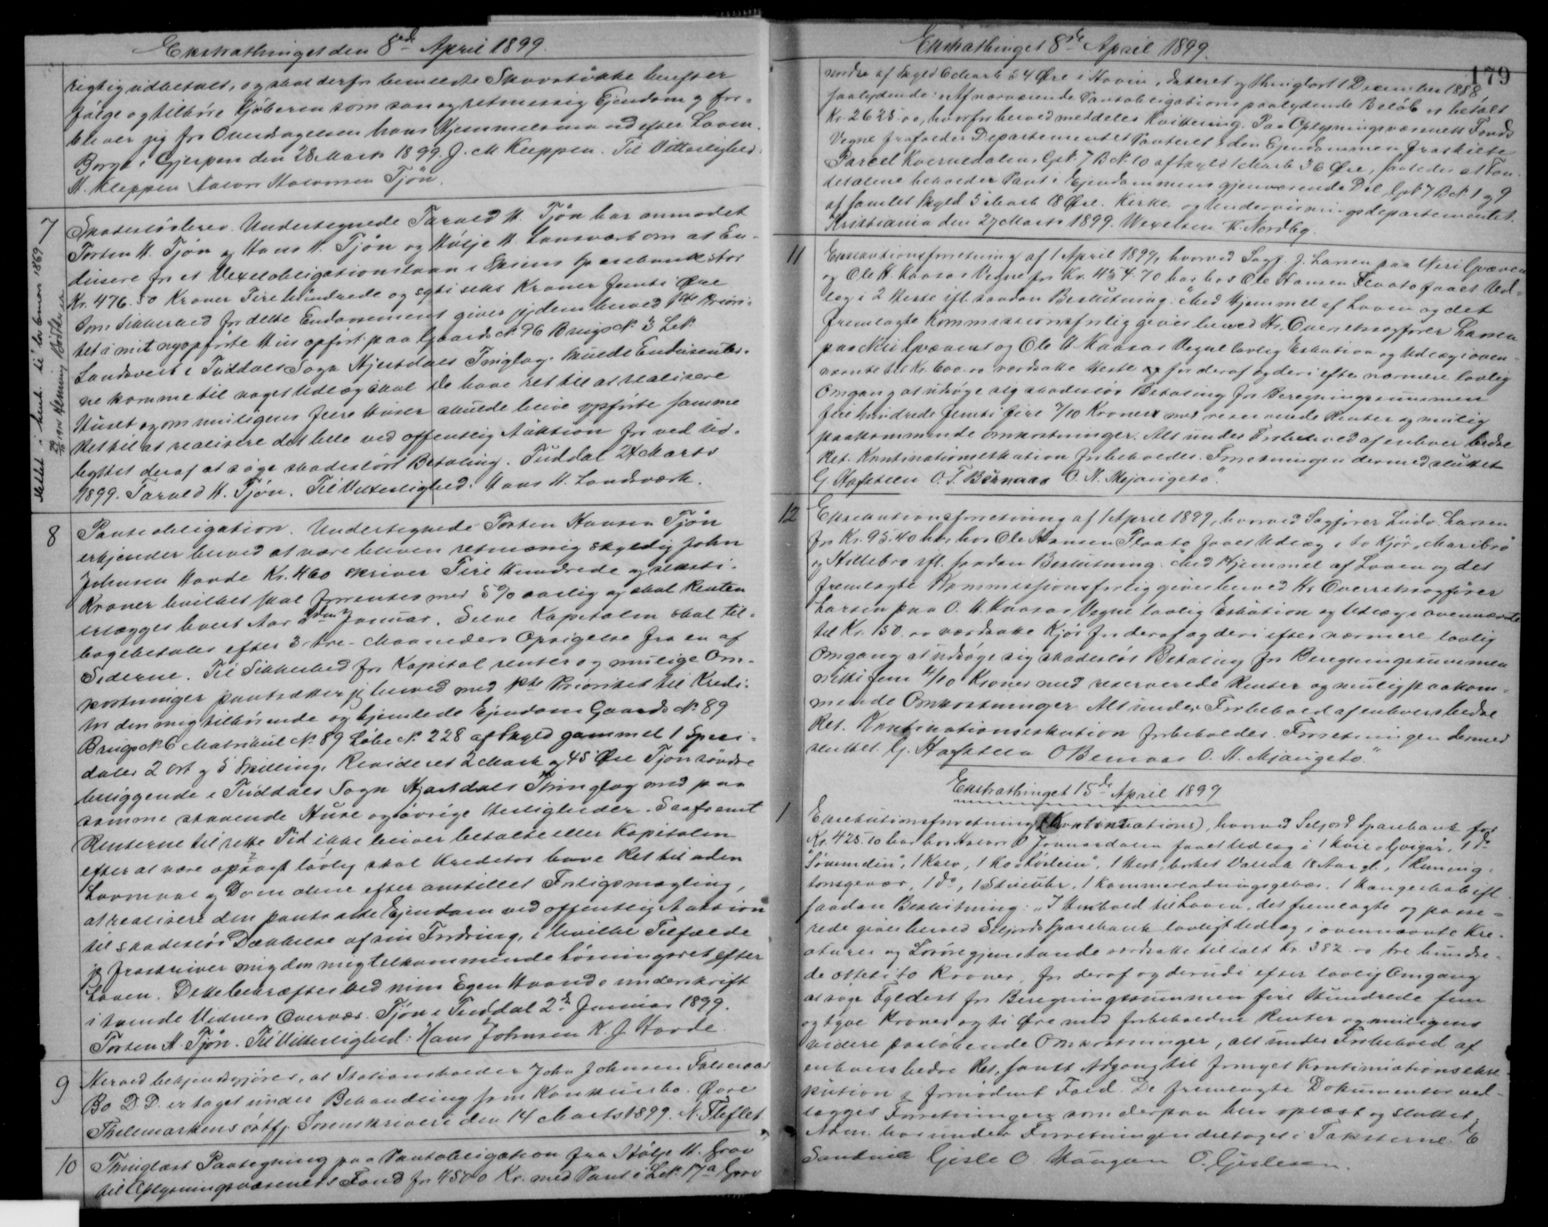 Ekstrathinget den 8de April 1899.
rigtig udbetalt, og skal derfor bemeldte Skovstykke herefter
følge og tilhøre Kjøberen som san og retmessig Eiendom og for-
bliver jeg for Overdragelsen hans Hjemmelsmann efter Loven.
Borge i Gjerpen den 28 Marts 1899. J. M Kleppen. Til Vitterlighed:
H. Kleppen Halvor Halvorsen Tjøn.
7 Skadesløsbrev. Undertegnede Tarald H. Tjøn har anmodet
Torsten H. Tjøn og Hans H. Tjøn og Høljе H. Landsverk om at En-
dosere for et Vexelobligationslaan i Skiens Sparebank stor
Kr. 476.50 Kroner Firehundrede og sytti seks Kroner femti Øre
Som Sikkerhed for dette Endossement giver jeg dem herved 1ste Priori-
tet i mit nyopførte Hus opført paa Gaards No 96 Brugs No 3 Lek
Landsverk i Tuddals Sogn Hjertdals Tinglag. Skulde Endosenter-
ne komme til noget Udlæg skal De have ret til at realisere
Huset og om muligens flere Huser skulde blive opførte samme
Ret til at realisere det hele ved offentlig Auktion for ved Ud-
byttet deraf at søge skadesløst Betaling. Tuddal 24 Marts
1899. Tarald H. Tjøn. Til Vitterlighed: Hans H. Landsverk.
8 Panteobligation. Undertegnede Torsten Hansen Tjøn
erkjender herved at være bleven retmæssig skyldig John
Johnsen Hovde Kr. 460 skriver Fire Hundrede og seksti
Kroner hvilket skal forrentes med 5 % aarlig og skal Renten
erlægges hvert Aar 2den Januar. Selve Kapitalen skal til-
bagebetales efter 3 tre Maaneders Opsigelse fra en af
Siderne. Til Sikkerhed for Kapital renter og mulige Om-
kostninger pantsetter jeg herved med 1ste Prioritet til Kredi-
tor den meg tilhørende og hjemlede Eiendom Gaards No 89
Brugs No 6 Matrikul No 89 Løbe No 228 af Skyld gammel 1 Speci-
daler 2 ort og 5 Skilling, Revideret 2 Mark og 45 Øre Tjøn søndre
beliggende i Tuddals Sogn Hjertdals Thinglag med paa
samme staaende Huse og øvrige Herligheder. Saafremt
Renterne til rette Tid ikke bliver betalte eller Kapitalen
efter at være opsagt lovlig skal Kreditor have Ret til uden
Lovmaal og Dom alene efter anstillet Forligsmægling,
at realisere den pantsatte Eiendom ved offentlig Auktion
til skadesløs Dækkelse af sin Fordring, i hvilket Tilfælde
jeg fraskriver mig den mig tilkommende Løsningsret efter
Loven. Dette bekræftes med min Egen Haands underskrift
i tvende Vidners Overvær. Tjøn i Tuddal 2de Januar 1899.
Torsten H Tjøn. Til Vitterlighed: Hans Johnsen K J Hovde
9 Herved bekjendtgjøres, at Stationsholder John Johnsen
Bo D. D. er taget under Behandling som Konkursbo. Øvre
Thelemarkens østfj. Sorenskriveri den 14 Marts 1899. N. Fleflet
10 Thinglæst Paategning paa Pantobligation fra Høljе H. Grov
til Oplysningsvæsenets Fond for 4500 Kr. med Pant i Lek 17a Grov
Ekstrathinget 8de April 1899.
179
nordre af Skyld 6 Mark 54 Øre i Hovin, dateret og thinglæst 1 December 1888
saalydende: Af nærværende Pantobligations paalydende Beløb er betalt
Kr. 2625.00, hvorfor herved meddeles Kvittering. Paa Oplysningsvæsenets Fonds
Vegne frafalder Departementet Panteret i den Eiendommen fraskilte
Parcel Kvernedalen, Gst 7 B No 10 af Skyld 1 Mark 36 Øre, saaledes at Fon-
det alene beholder Pant i Eiendommens gjenværende Del, Gst 7 B No 1 og 9
af samlet Skyld 5 Mark 18 Øre. Kirke og Undervisningsdepartementet.
Kristiania den 27 Marts 1899. Wexelsen K. Nordby.
11 Executionsforretning af 1 April 1899, hvorved Sagf. J. Larsen paa
og Ole H. Kaasas Vegne for Kr. 454.70 har hos Ole Hansen Flaata faaet Ud-
læg i 2 Heste ift. saadan Beslutning: "Med Hjemmel af Loven og det
fremlagte Kommissionsforlig gives herved Hr. Overretssagfører Larsen
paa og Ole H. Kaasas Vegne lovlig Exekution og Udlæg i oven-
nævnte til Kr. 600.00 værdsatte Heste og for deraf og deri efter nærmere lovlig
Omgang at udsøge sig skadesløs Betaling for Beregningssummen
firehundrede femti fire 7/10 Kroner med reserverede Renter og mulig
paakommende omkostninger. Alt under Forbehold af enhver bedre
Ret. Kontinuationsexekution forbeholdes. Forretningen dermed sluttet
G. Hafsteen O. T. Bernaas O. H. Mjaugeto."
12 Exekutionsforretning af 1 April 1899, hvorved Sagfører Ludv. Larsen
for Kr. 95.40 har hos Ole Hansen Flaata faaet Udlæg i to Kjør, Maribro
og Hillebro ift. saadan Beslutning: "Med Hjemmel af Loven og det
fremlagte Kommissionsforlig gives herved Hr. Overretssagfører
Larsen paa O. H. Kaasas Vegne lovlig Exekution og Udlæg i ovennævnte
til Kr. 150.00 værdsatte Kjør for deraf og deri efter nærmere lovlig
Omgang at udsøge sig skadesløs Betaling for Beregningssummen
nitti fem 4/10 Kroner med reserverede Renter og mulig paakom-
mende Omkostninger. Alt under Forbehold af enhvers bedre
Ret. Kontinuationsexekution forbeholdes. Forretningen dermed
sluttet. G. Hafsteen O Bernaas O. H. Mjaugeto."
Ekstrathinget 15de April 1899
1 Exekutionsforretning (Kontinuations), hvorved Seljord Sparebank for
Kr. 425.10 har hos Halvor O. faaet Udlæg i 1 Kvie "Gvigar", 1 do
1 Kalv, 1 Ko 1 Hest, borket Vallak 18 Aar gl., 1 Reming-
tongevær, 1 do, 1 Stueuhr, 1 Kammerladningsgevær, 1 Hængeskab ift.
saadan Beslutning: "I Henhold til Loven, det fremlagte og passe-
rede gives herved Seljords Sparebank lovligt Udlæg i ovennævnte Kre-
aturer og Løsøregjenstande værdsatte til ialt Kr. 382.00 tre hundre-
de otteti to Kroner, for deraf og derudi efter lovlig Omgang
at søge Fyldest for Beregningssummen fire Hundrede fem
og tyve Kroner og ti Øre med forbeholdne Renter og muligens
videre paaløbende Omkostninger, alt under Forbehold af
enhvers bedre Ret, samt Adgang til fornyet Kontinuationsexe-
kution i fornødent Fald. De fremlagte Dokumenter ved-
lægges Forretningen som derpaa blev oplæst og sluttet.
under Forretningen deltaget i Taksterne. E
Sandnes Gisle O Haugan O. Gislesen.